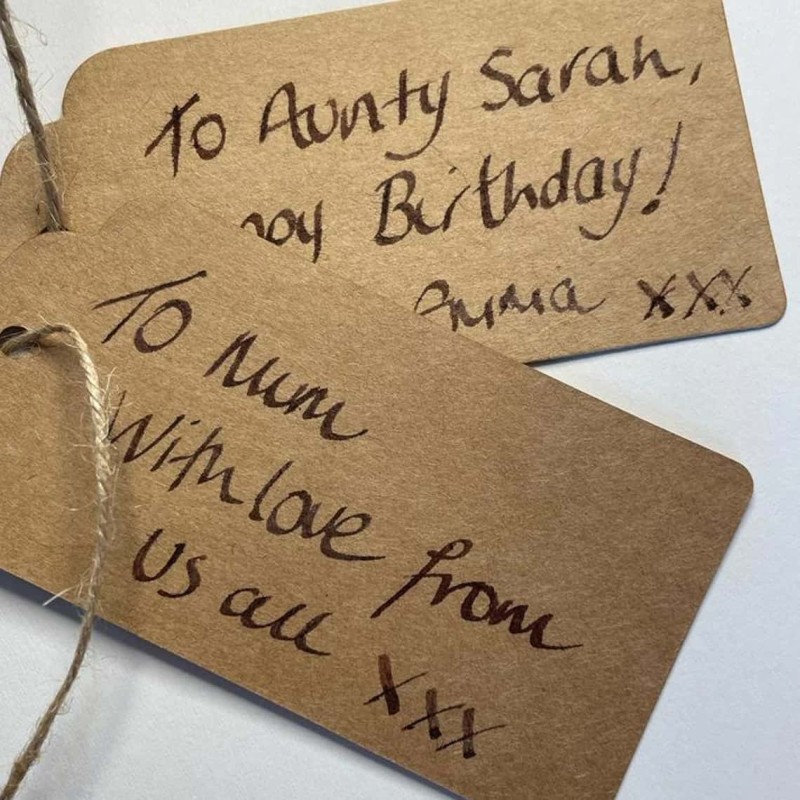 To Aunty Sarah,
Birthday!
xxx
To Mum
With love from
us all xxx